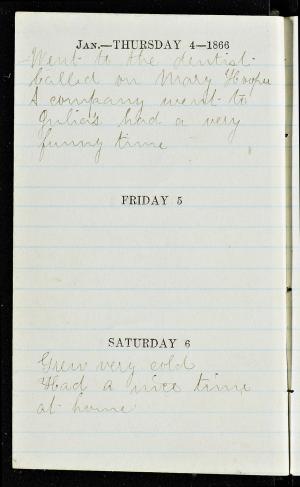 JAN.—THURSDAY 4—1866
Went to the dentist
called on Mary Hooper
& company went to
Julia's had a very
funny time
FRIDAY 5
SATURDAY 6
Grew very cold
Had a nice time
at home